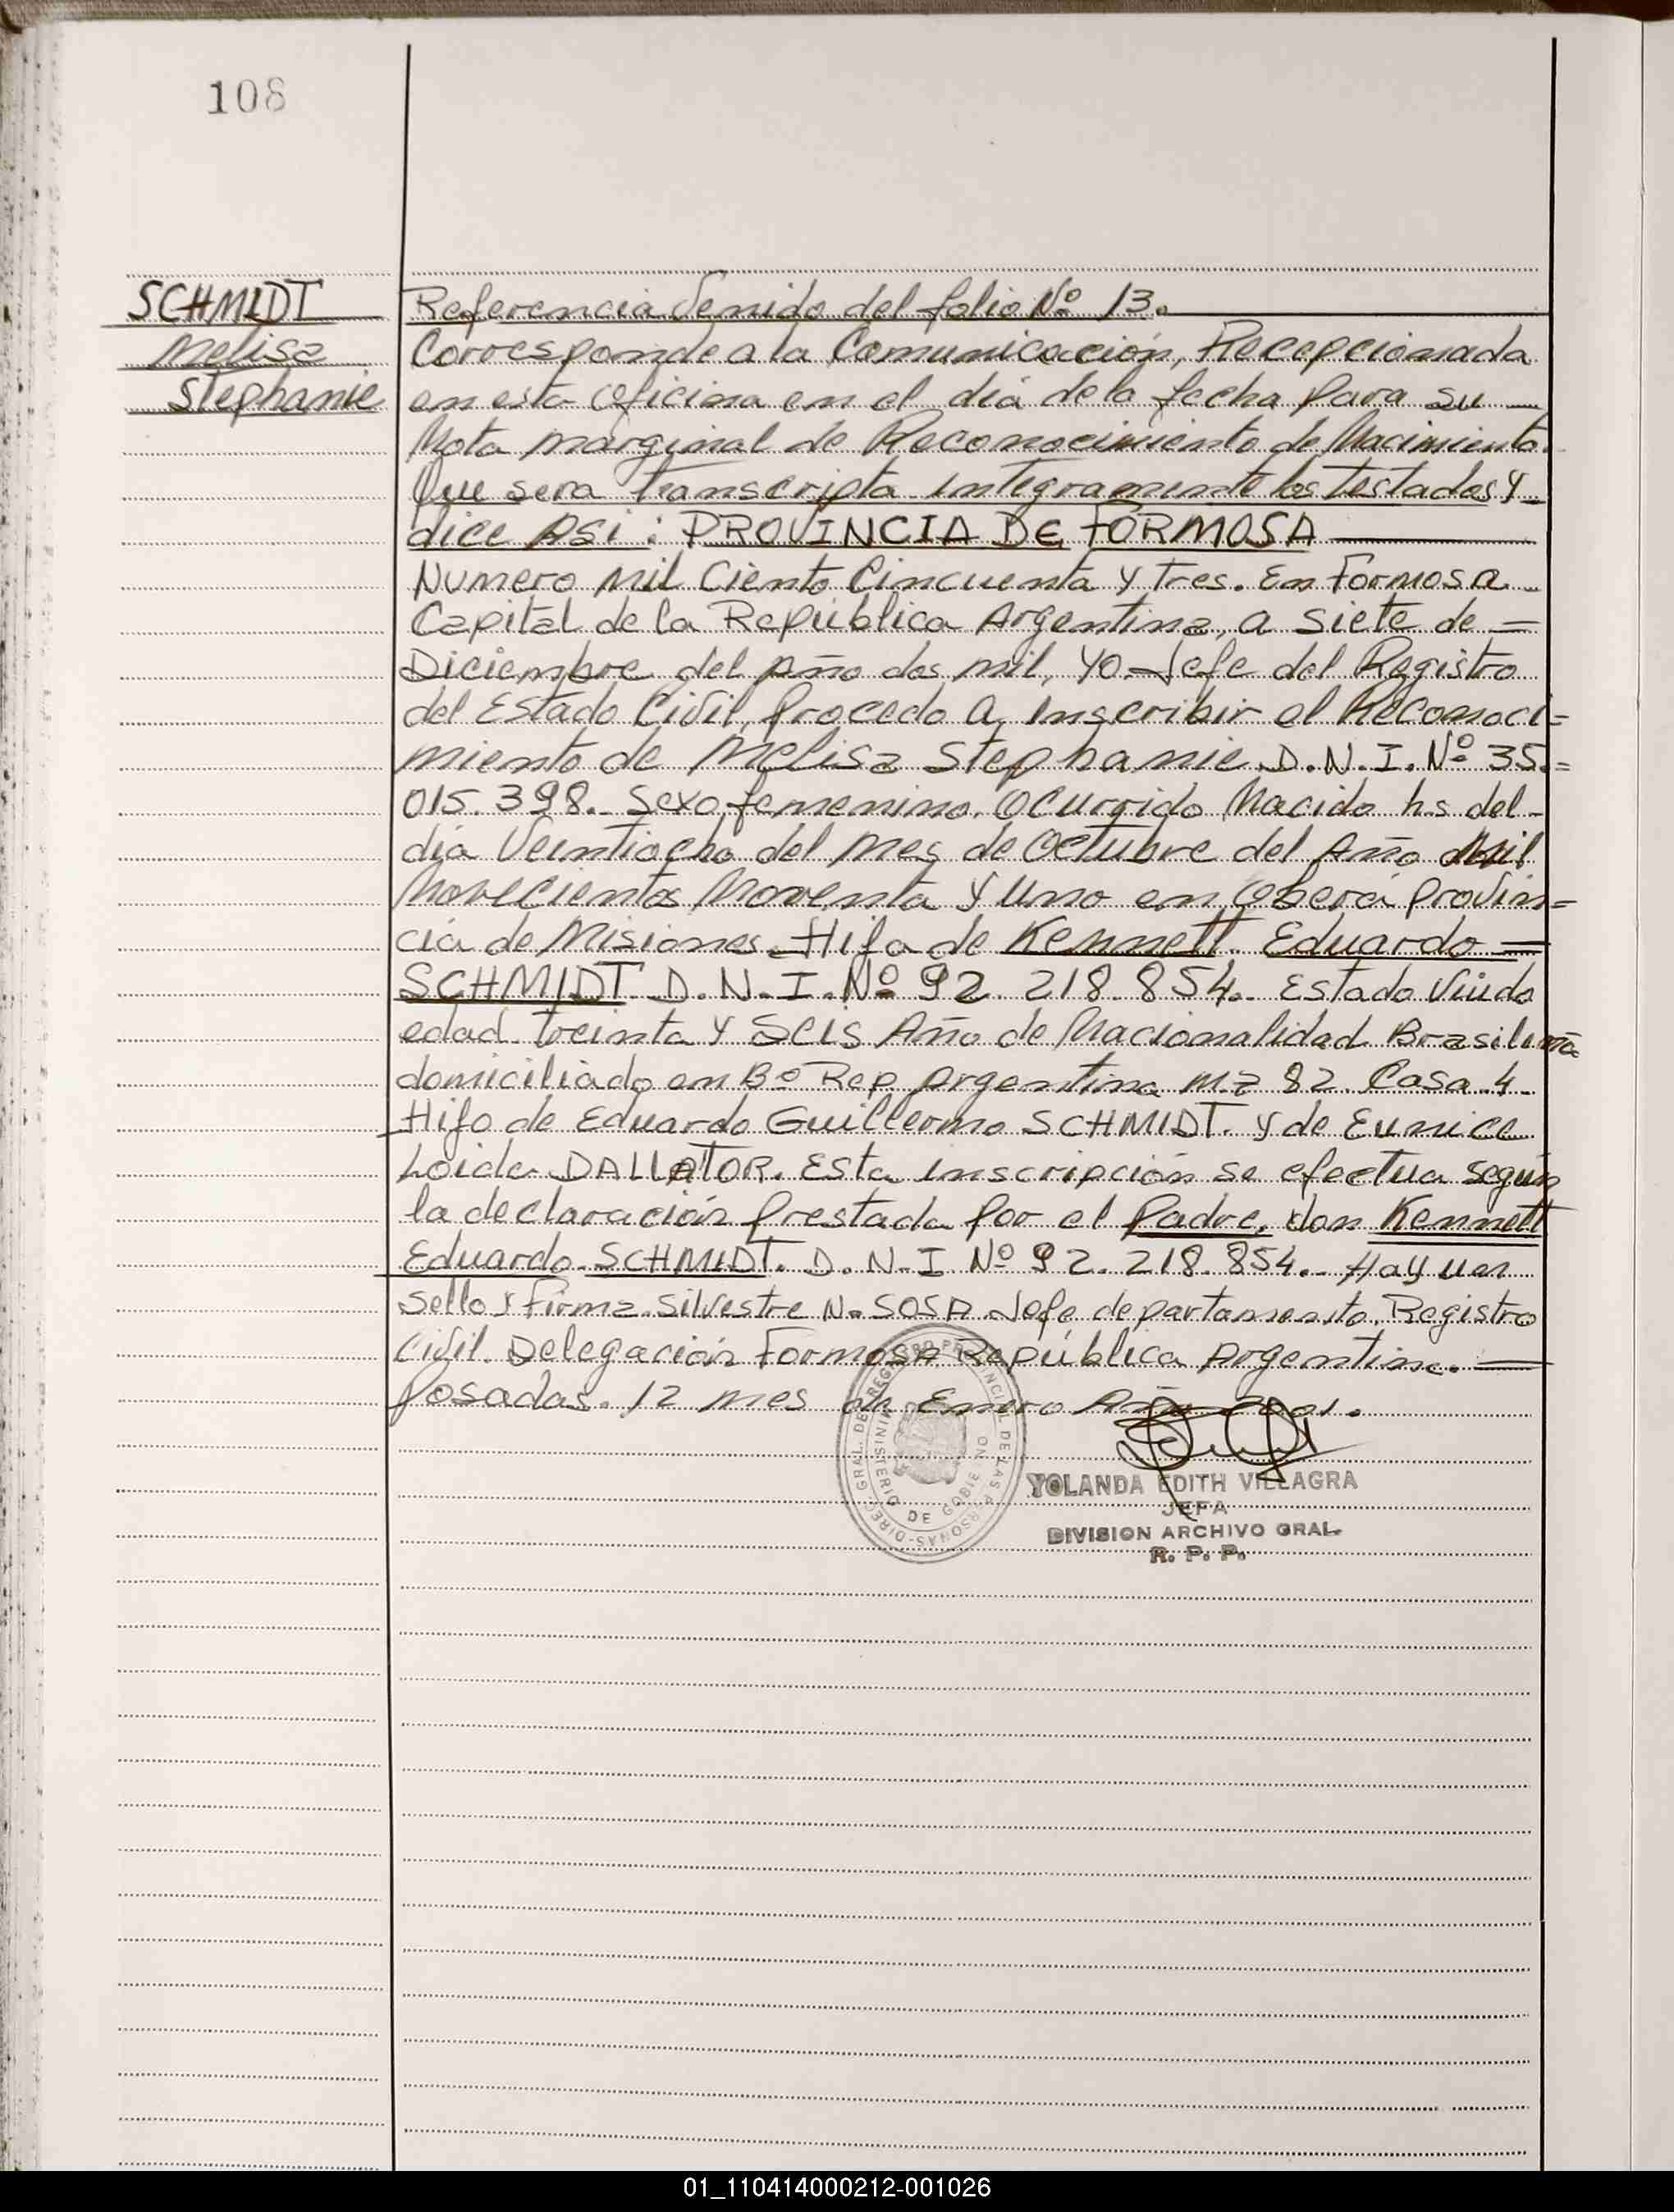 108
SCHMIDT
Melisa
Stephanie
Referencia Venido del folio Nº 13.
Corresponde a la Comunicación, Recepcionada
en esta Oficina en el día de la fecha para su
Nota marginal de Reconocimiento de Nacimiento.
Que sera transcripta integramente los testados y
dice Asi: PROVINCIA DE FORMOSA
Numero Mil Ciento Cincuenta y Tres. En Formosa
Capital de la República Argentina, a siete de =
Diciembre del Año dos mil, Yo Jefe del Registro
del Estado Civil, procedo a inscribir el Reconoci=
miento de Melisa Stephanie D.N.I. Nº 35.=
015.398.- Sexo femenino. Ocurrido Nacido hs del-
día Veintiocho del mes de Octubre del Año Mil
Novecientos Noventa y Uno en Oberá provin=
cia de Misiones. Hija de Kennett Eduardo =
SCHMIDT D.N.I. Nº 92.218.854. Estado Viudo
edad treinta y SEIS Año de Nacionalidad Brasileña
domiciliado en Bº Rep. Argentina Mz 82 Casa 4-
Hijo de Eduardo Guillermo SCHMIDT. y de Eunice
Loida DALLATOR. Esta inscripción se efectua según
la declaración prestada por el Padre, don Kennett
Eduardo SCHMIDT. D.N.I Nº 92.218.854.- Hay un
Sello y Firma Silvestre N. SOSA Jefe departamento. Registro
Civil. Delegación Formosa República Argentina.
Posadas. 12 mes de Enero Año 2001.
DIREC. GRAL. DE REGISTRO PROVINCIAL DE LAS PERSONAS
MINISTERIO DE GOBIERNO
YOLANDA EDITH VILLAGRA
JEFA
DIVISION ARCHIVO GRAL.
R. P. P.
01_110414000212-001026